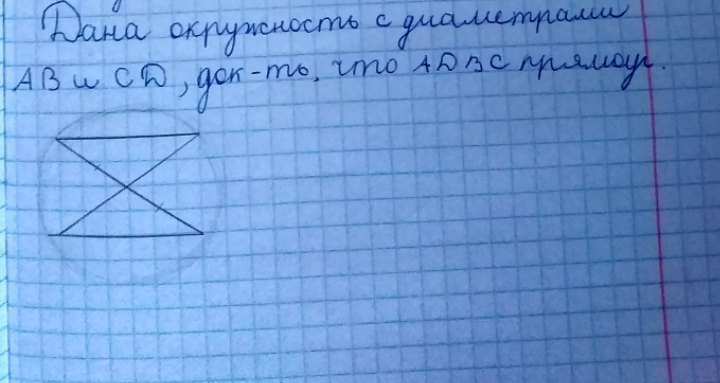 Дана окружность с диаметрами
АВ и CD, док-ть, что ADBC прямоуг.